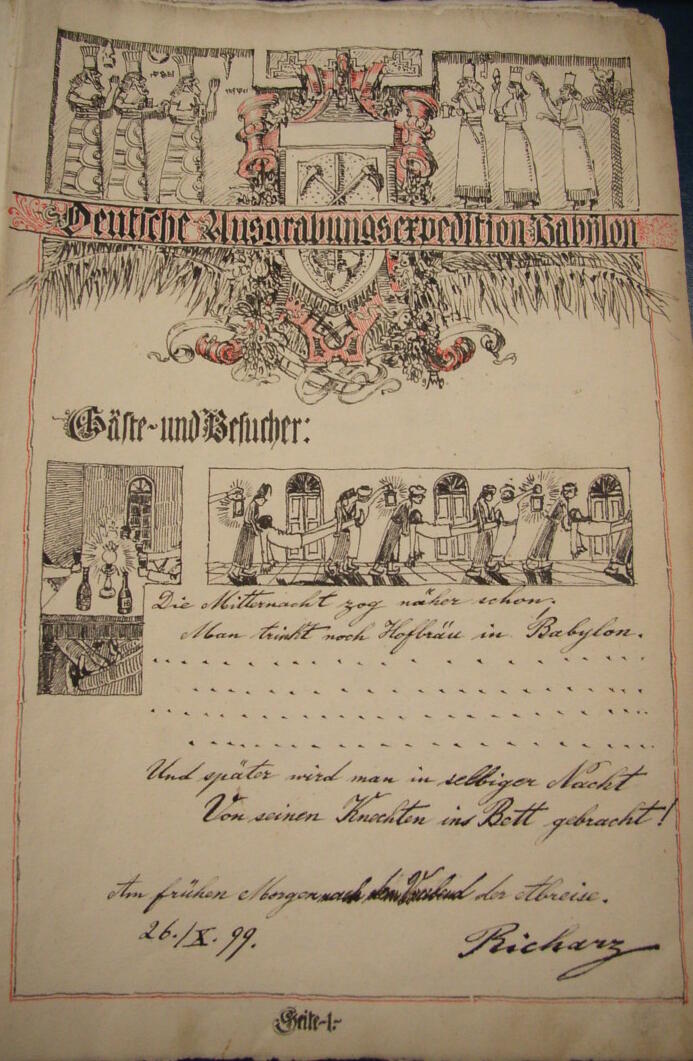 Deutsche Ausgrabungsexpedition Babylon
Gäste- und Besucher:
Die Mitternacht zog näher schon,
Man trinkt noch Hofbräu in Babylon.
Und später wird man in selbiger Nacht
Von seinen Knechten ins Bett gebracht!
Am frühen Morgen der Abreise.
26./X. 99.
Richarz
Seite-1-